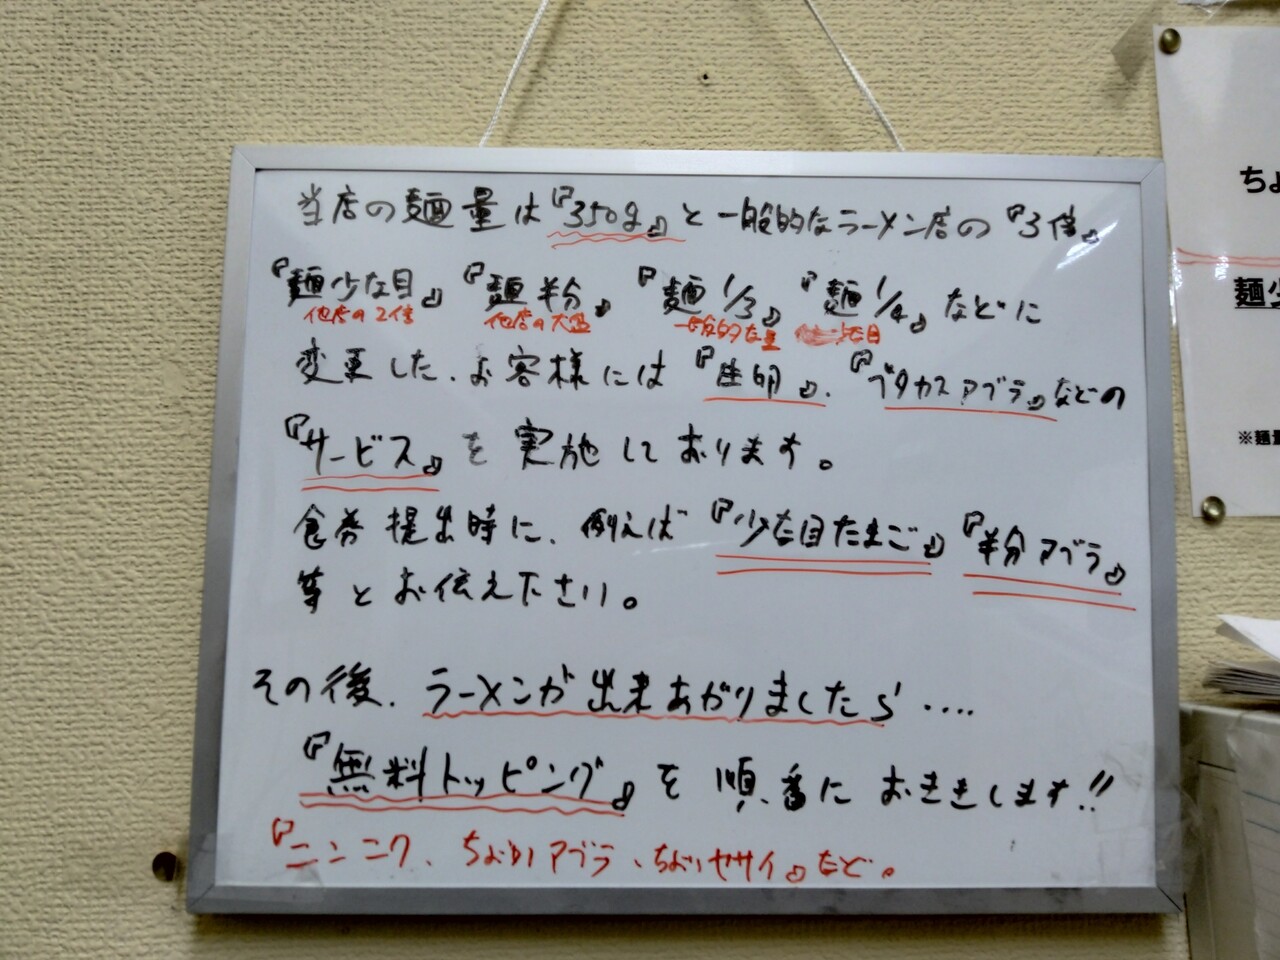 当店の麺量は『350g』と一般的なラーメン店の『3倍』
『麺少な目』『麺半分』『麺1/3』『麺1/4』などに
他店の2倍 他店の大盛 一般的な量 少な目
変更した、お客様には『生卵』、『ブタカスアブラ』などの
『サービス』を実施しております。
食券提出時に、例えば『少な目たまご』『半分アブラ』
等とお伝え下さい。
その後、ラーメンが出来あがりましたら‥‥
『無料トッピング』を順番におききします!!
『ニンニク、ちょいアブラ、ちょいヤサイ』など。
ちょ
麺少
※麺量